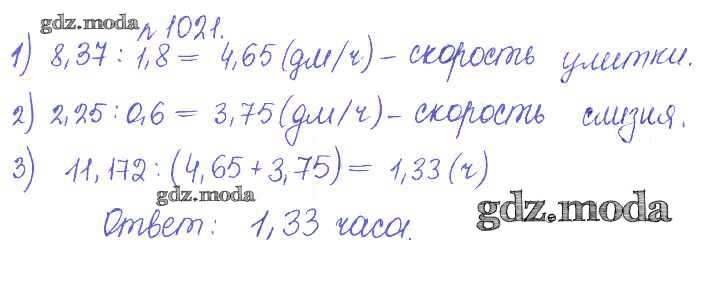 gdz.moda
№ 1021.
1) 8,37 : 1,8 = 4,65 (дм/ч) - скорость улитки.
2) 2,25 : 0,6 = 3,75 (дм/ч) - скорость слизня.
3) 11,172 : (4,65 + 3,75) = 1,33 (ч)
gdz.moda
gdz.moda
Ответ: 1,33 часа.